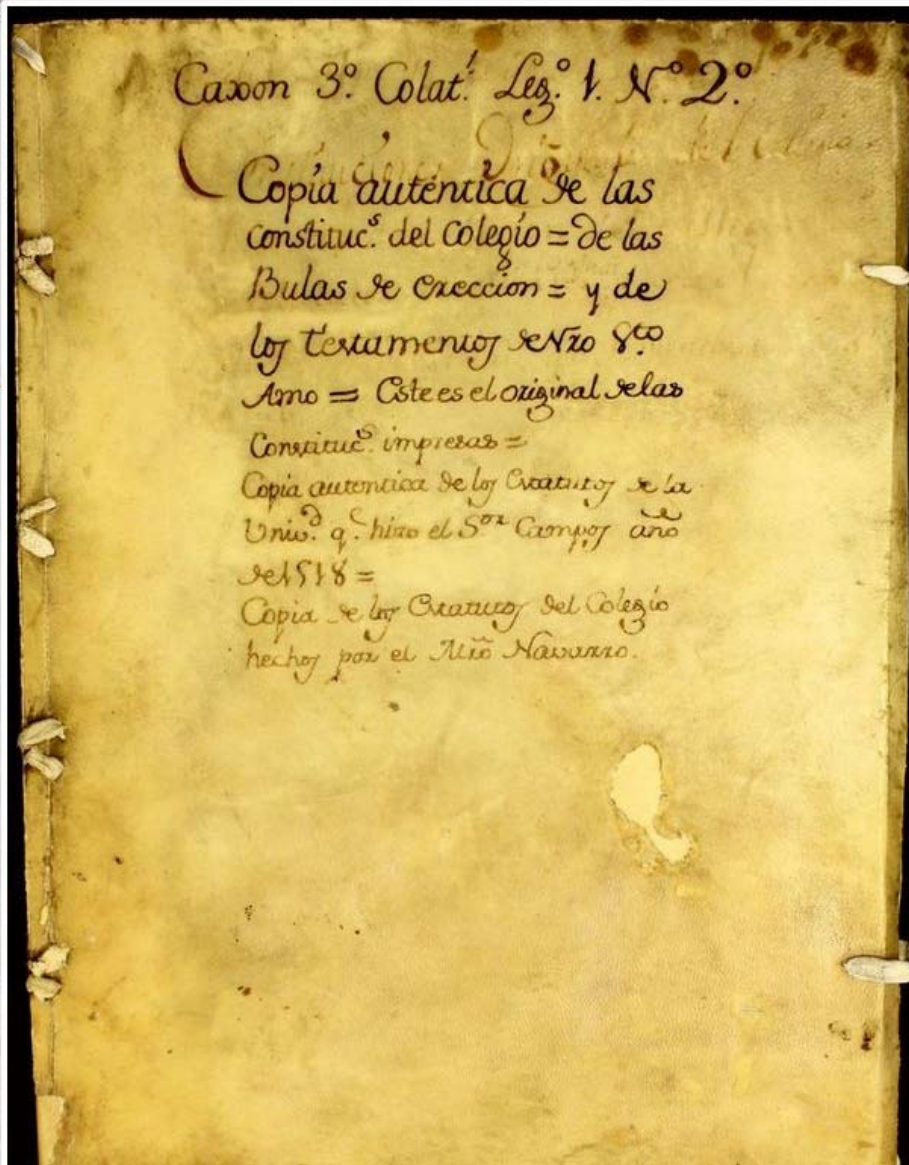 Caxon 3º. Colat.ˡ Leg.º 1. N.º 2.º
Copia auténtica de las
constituc.ˢ del Colegio = de las
Bulas de ereccion = y de
los testamentos de Nro S.ᵗᵒ
Amo = Este es el original de las
Constituc.ˢ impresas =
Copia autentica de los Estatutos de la
Univ.ᵈ q.ᵉ hizo el S.ᵒʳ Campos año
de 1518 =
Copia de los Estatutos del Colegio
hechos por el Mro Navarro.